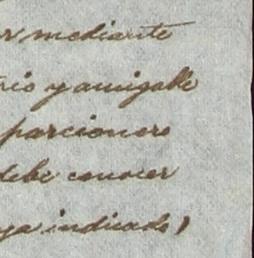 mediante
rio y amigable
parcionero
debe conocer
ya indicado,